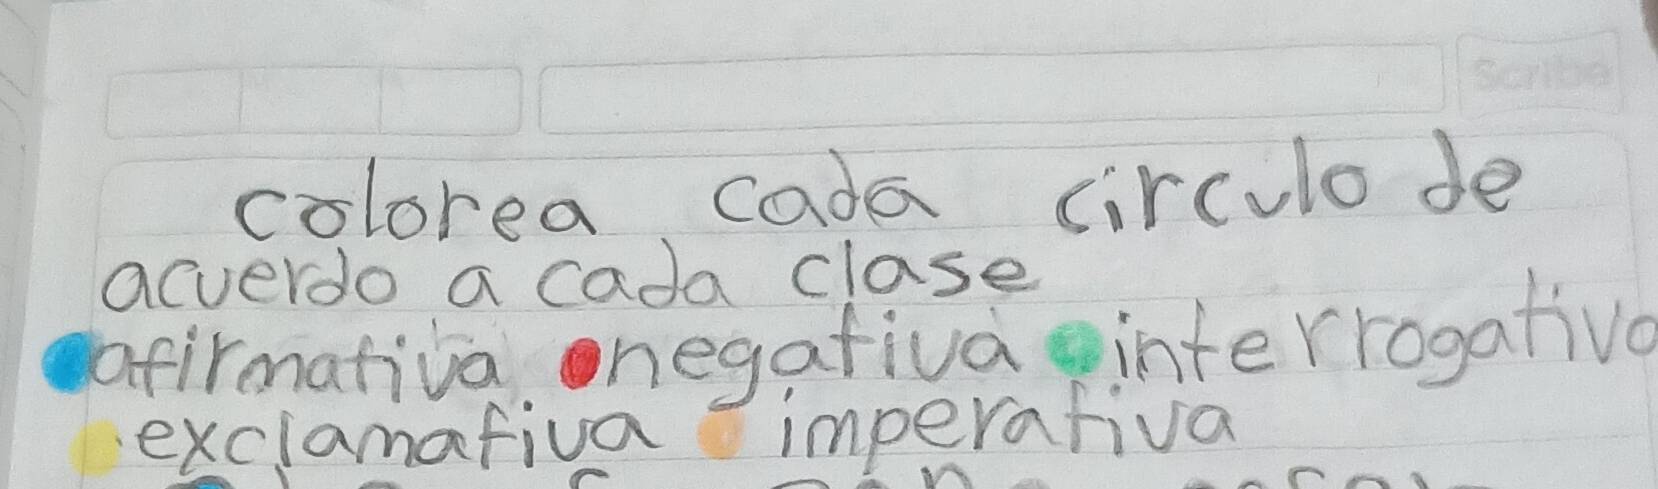 Scribe
colorea cada circulo de
acuerdo a cada clase
afirmativa negativa interrogativa
exclamativa imperativa